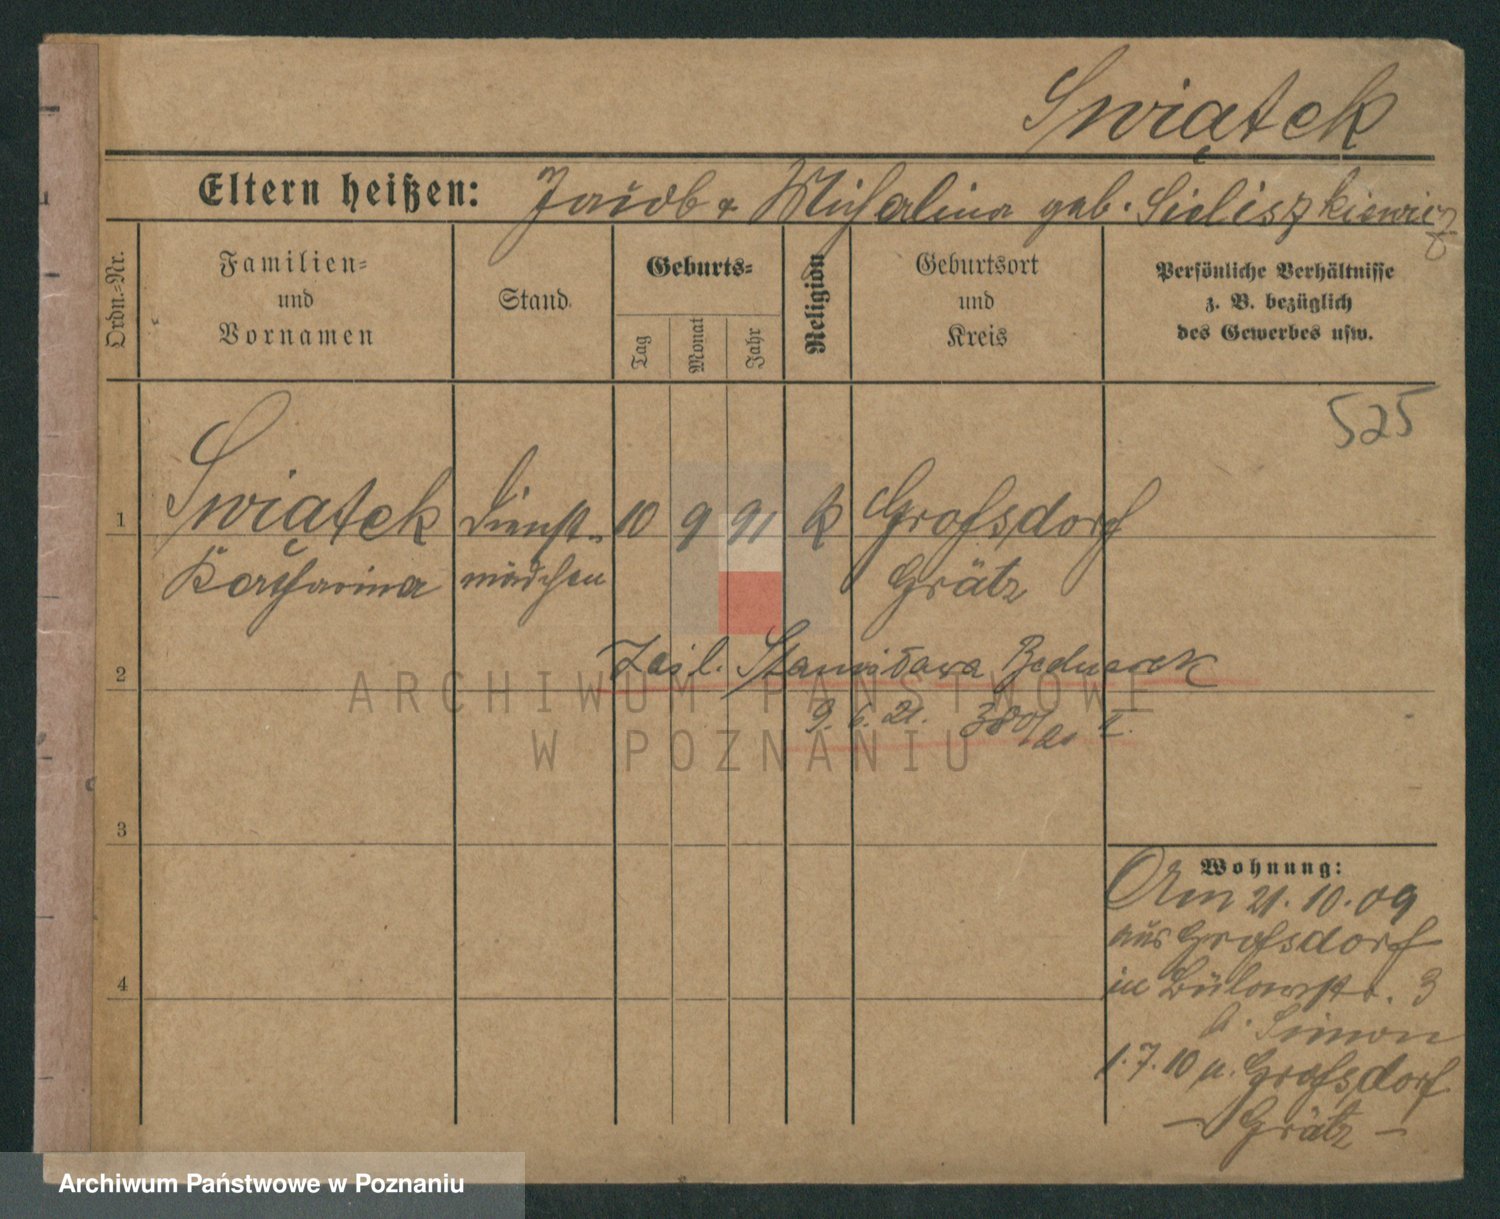 Swiątek
Eltern heißen: Jakob & Michalina geb. Sieliszkiewicz
Ordn.-Nr.
Familien-
und
Vornamen
Stand
Geburts-
Tag
Monat
Jahr
Religion
Geburtsort
und
Kreis
Persönliche Verhältnisse
z. B. bezüglich
des Gewerbes usw.
525
1 Swiątek Dienst- 10 9 91 k Grofsdorf
Katharina mädchen Grätz
2 Stanisława Bednarek
9. 6. 21. 380/21 II.
3
4
Wohnung:
Am 21. 10. 09
aus Grofsdorf
in Bülowstr. 3
b. Simon
1. 7. 10 n. Grofsdorf
— Grätz —
ARCHIWUM PAŃSTWOWE
W POZNANIU
Archiwum Państwowe w Poznaniu